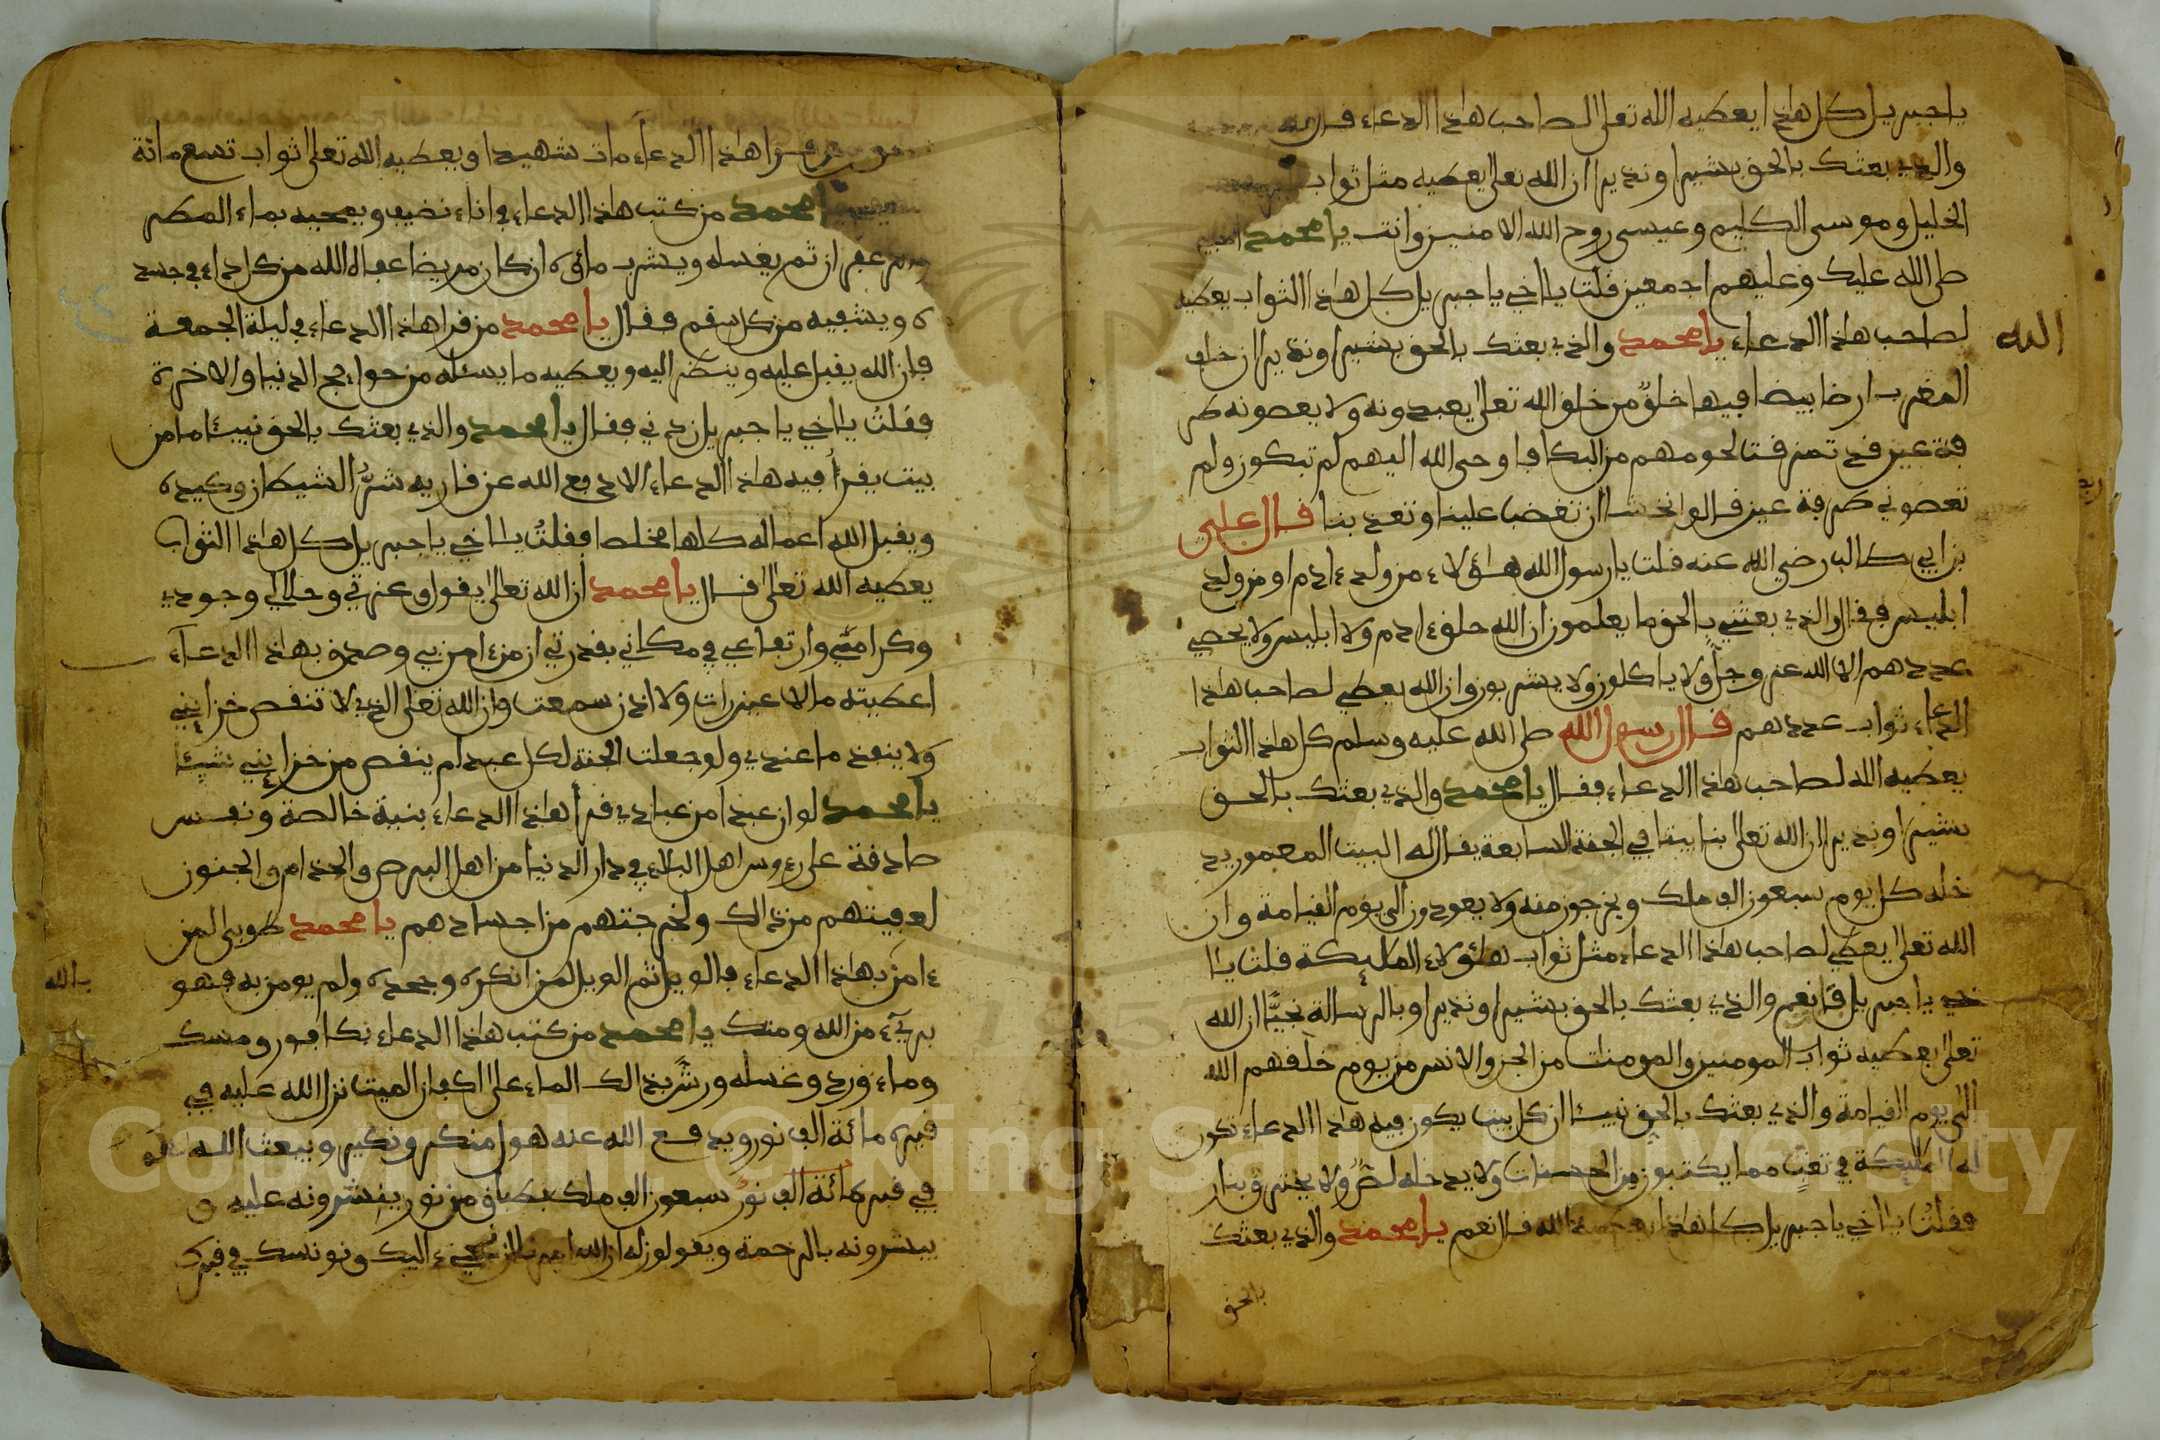 يا جبريل كل هاذا يعطيه الله تعلى لصاحب هاذا الدعاء قال نعم
والذي بعثك بالحق بشيرا ونذيرا ان الله تعلى يعطيه مثل ثواب
الخليل وموسى الكليم وعيسى روح الله الامين وانت يا محمد
صلى الله عليك وعليهم اجمعين قلت يا اخي يا جبريل كل هاذا الثواب يعطيه
الله
لصاحب هاذا الدعاء يا محمد والذي بعثك بالحق بشيرا ونذيرا ان خلف
المغرب ارضا بيضا فيها خلق من خلق الله تعلى يعبدونه ولا يعصونه طر
فة عين قد تمزقت لحومهم من البكا فاوحى الله اليهم لم تبكون ولم
تعصوني طرفة عين قالوا نخشا ان تغضب علينا وتعذبنا قال علي
بن ابي طالب رضي الله عنه قلت يا رسول الله هاؤلاء من ولد ءادم او من ولد
ابليس فقال والذي بعثني بالحق ما يعلمون ان الله خلق ءادم ولا ابليس ولا يحصي
عددهم الا الله عز وجل ولا ياكلون ولا يشربون وان الله يعطي لصاحب هاذا
الدعاء ثواب عددهم قال رسول الله صلى الله عليه وسلم كل هاذا الثواب
يعطيه الله لصاحب هاذا الدعاء فقال يا محمد والذي بعثك بالحق
بشيرا ونذيرا ان الله تعلى بنا بيتا في الجنة السابعة يقال له البيت المعمور يد
خله كل يوم سبعون الف ملك ويخرجون منه ولا يعودون الى يوم القيامة وان
الله تعلى يعطي لصاحب هاذا الدعاء مثل ثواب هاؤلاء الملايكة قلت يا ا
خي يا جبريل قال نعم والذي بعثك بالحق بشيرا ونذيرا وبالرسالة نجيا ان الله
تعلى يعطيه ثواب المومنين والمومنات من الجن والانس من يوم خلقهم الله
الى يوم القيامة والذي بعثك بالحق نبيئا ان كل بيت يكون فيه هاذا الدعاء تكون
له الملايكة في تعب مما يكتبون من الحسنات ولا يدخله لص ولا يحترق بنار
فقلت يا اخي يا جبريل كل هاذا يعطيه الله قال نعم يا محمد والذي بعثك
بالحق
من قرا هاذا الدعاء مات شهيدا ويعطيه الله تعلى ثواب تسع مائة
يا محمد من كتب هاذا الدعاء في اناء نضيف ويمحيه بماء المطر
وزعفران ثم يغسله ويشرب ماؤه ان كان مريضا عفاه الله من كل داء في جسد
ه ويشفيه من كل سقم فقال يا محمد من قرا هاذا الدعاء في ليلة الجمعة
فان الله يقبل عليه وينظر اليه ويعطيه ما يسئله من حوايج الدنيا والاخرة
فقلت يا اخي يا جبريل زدني فقال يا محمد والذي بعثك بالحق نبيئا ما من
بيت يقرا فيه هاذا الدعاء الا دفع الله عن قاريه شر الشيطان وكيده
ويقبل الله اعماله كلها مخلصا فقلت يا اخي يا جبريل كل هاذا الثواب
يعطيه الله تعالى قال يا محمد ان الله تعالى يقول وعزتي وجلالي وجودي
وكرامتي وارتفاعي في مكاني بقدرتي ان من ءامن بي وصدق بهاذا الدعاء
اعطيته ما لا عين رات ولا اذن سمعت وان الله تعلى الذي لا تنقص خزايني
ولا ينفد ما عندي ولو جعلت الجنة لكل عبد لم ينقص من خزايني شيئا
يا محمد لو ان عبدا من عبادي قرا هاذا الدعاء بنية خالصة ونفس
صادقة على رءوس اهل البلاء في دار الدنيا من اهل البرص والجذام والجنون
لعفيتهم من ذالك ولخرجتهم من اجسادهم يا محمد طوبى لمن
ءامن بهاذا الدعاء فالويل ثم الويل لمن انكره وجحده ولم يومن به فهو
بالله
بريء من الله ومنك يا محمد من كتب هاذا الدعاء بكافور ومسك
وماء ورد وغسله ورش بذالك الماء على اكفان الميت نزل الله عليه في
قبره مائة الف نور ويدفع الله عنه هول منكر ونكير ويبعث الله له
في قبره مائة الف نور سبعون الف ملك بطباق من نور ينشرونه عليه و
يبشرونه بالرحمة ويقولون له ان الله امرنا ان نجيء اليك ونونسك في قبرك
Copyright © King Saud University